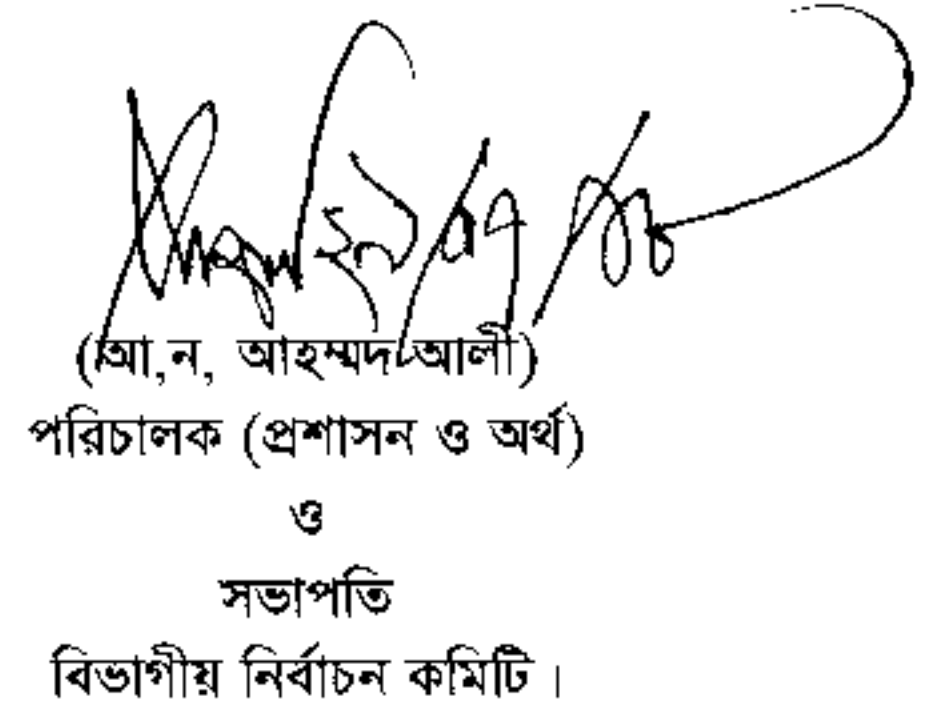 (আ,ন, আহম্মদ আলী)
পরিচালক (প্রশাসন ও অর্থ)
ও
সভাপতি
বিভাগীয় নির্বাচন কমিটি।